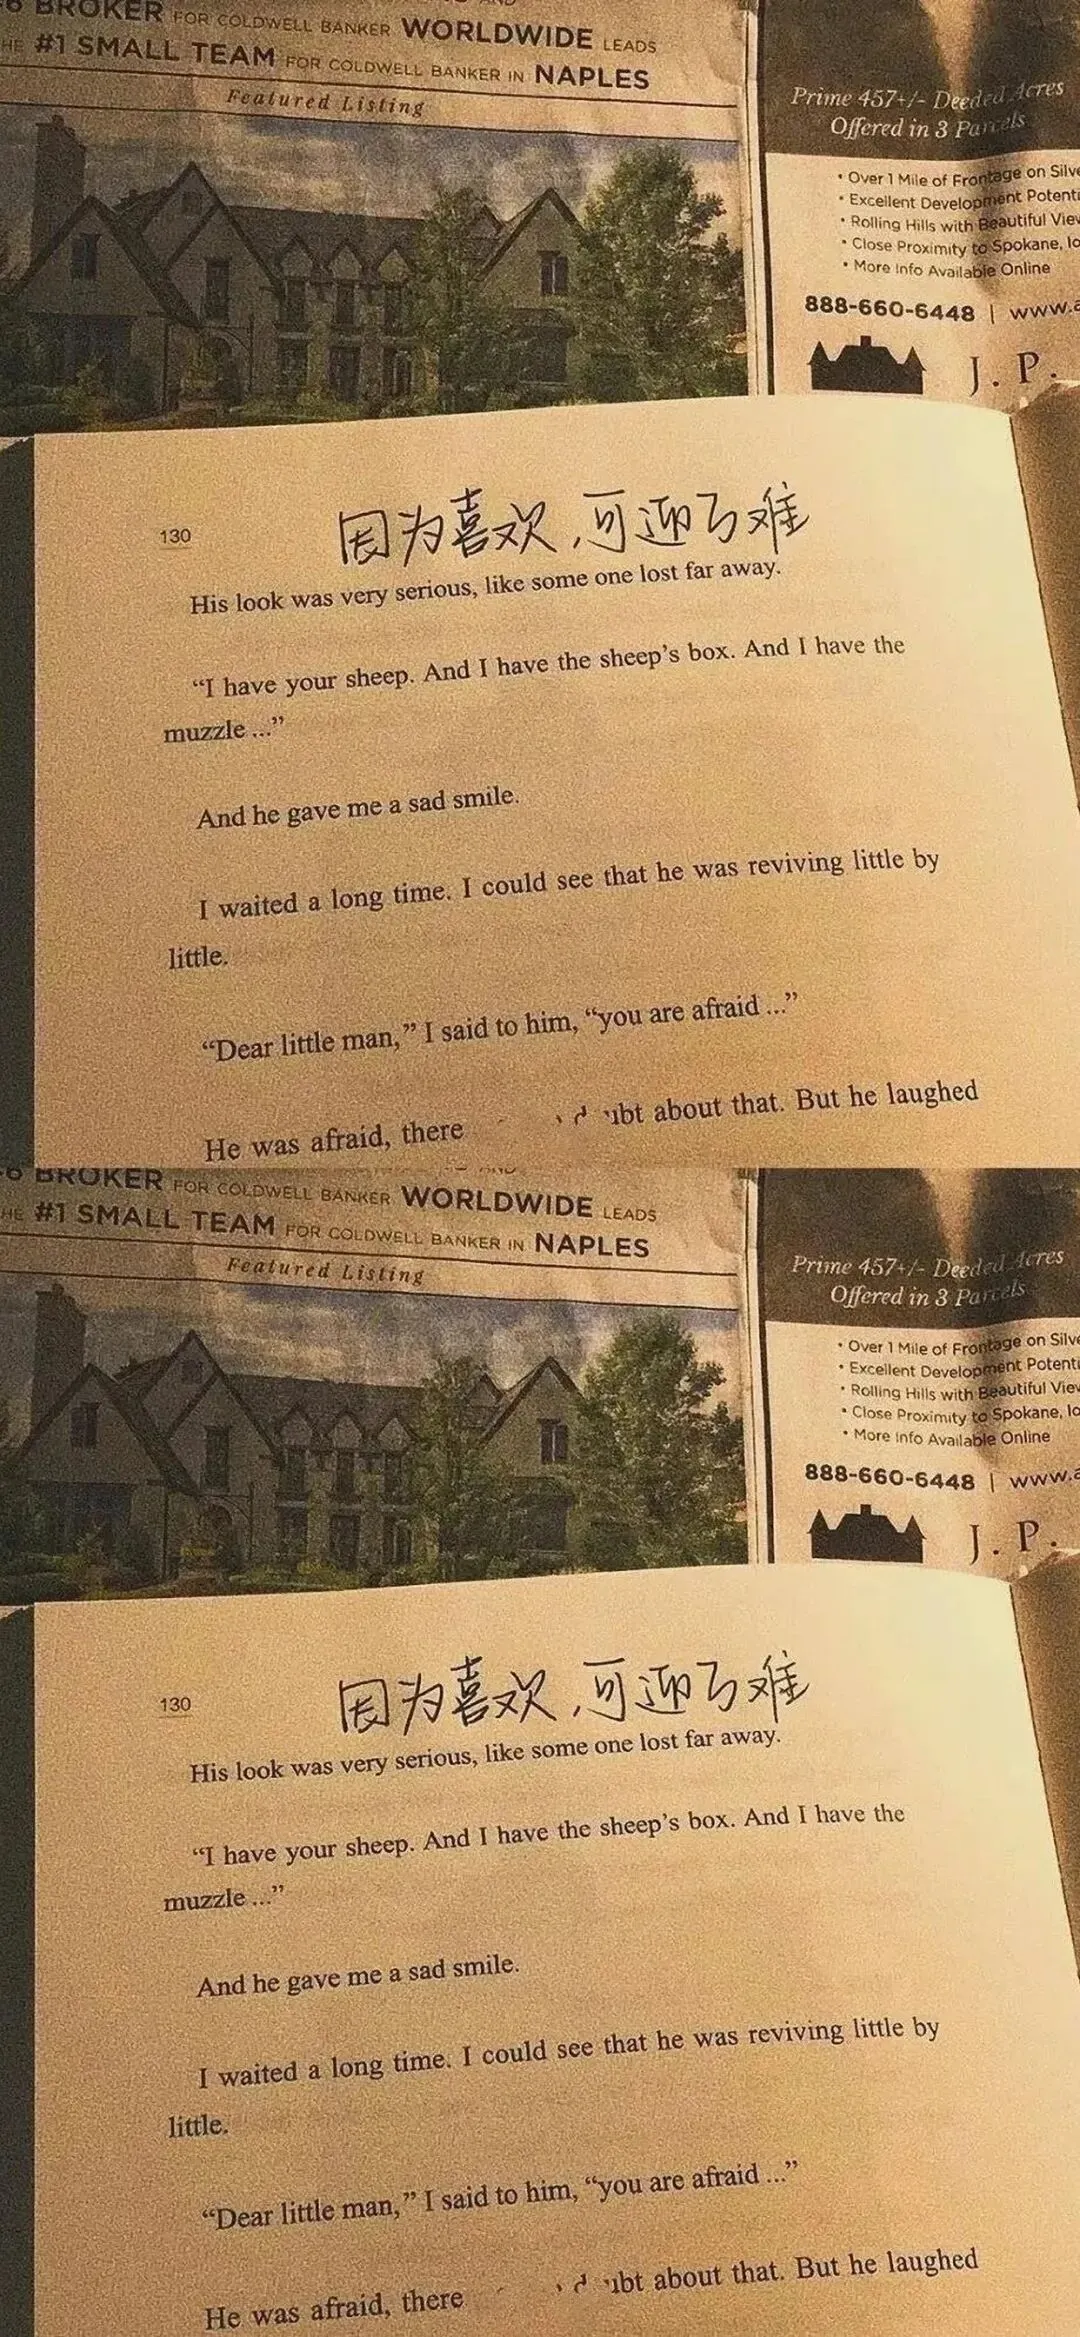 BROKER FOR COLDWELL BANKER WORLDWIDE LEADS
#1 SMALL TEAM FOR COLDWELL BANKER IN NAPLES
Featured Listing
Prime 457+/- Deeded Acres
Offered in 3 Parcels
• Over 1 Mile of Frontage on
• Excellent Development
• Rolling Hills with Beautiful
• Close Proximity to Spokane,
• More Info Available Online
888-660-6448 |
J. P.
130
因为喜欢,可迎万难
His look was very serious, like some one lost far away.
“I have your sheep. And I have the sheep’s box. And I have the
muzzle ...”
And he gave me a sad smile.
I waited a long time. I could see that he was reviving little by
little.
“Dear little man,” I said to him, “you are afraid ...”
He was afraid, there about that. But he laughed
BROKER FOR COLDWELL BANKER WORLDWIDE LEADS
#1 SMALL TEAM FOR COLDWELL BANKER IN NAPLES
Featured Listing
Prime 457+/- Deeded Acres
Offered in 3 Parcels
• Over 1 Mile of Frontage on
• Excellent Development
• Rolling Hills with Beautiful
• Close Proximity to Spokane,
• More Info Available Online
888-660-6448 |
J. P.
130
因为喜欢,可迎万难
His look was very serious, like some one lost far away.
“I have your sheep. And I have the sheep’s box. And I have the
muzzle ...”
And he gave me a sad smile.
I waited a long time. I could see that he was reviving little by
little.
“Dear little man,” I said to him, “you are afraid ...”
He was afraid, there about that. But he laughed